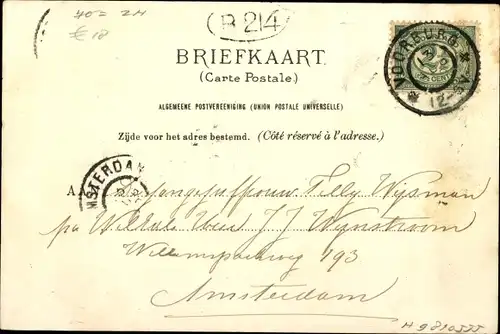 40= 2H
€ 18
B 214
BRIEFKAART.
(Carte Postale.)
ALGEMEENE POSTVEREENIGING (UNION POSTALE UNIVERSELLE)
Zijde voor het adres bestemd. (Côté réservé à l'adresse.)
VOORBURG
CENT
AMSTERDAM
AAN Jongejuffrouw Telly Wijsman
pa J J Wijnstroom
Willemsparkweg 193
Amsterdam
H 9810535